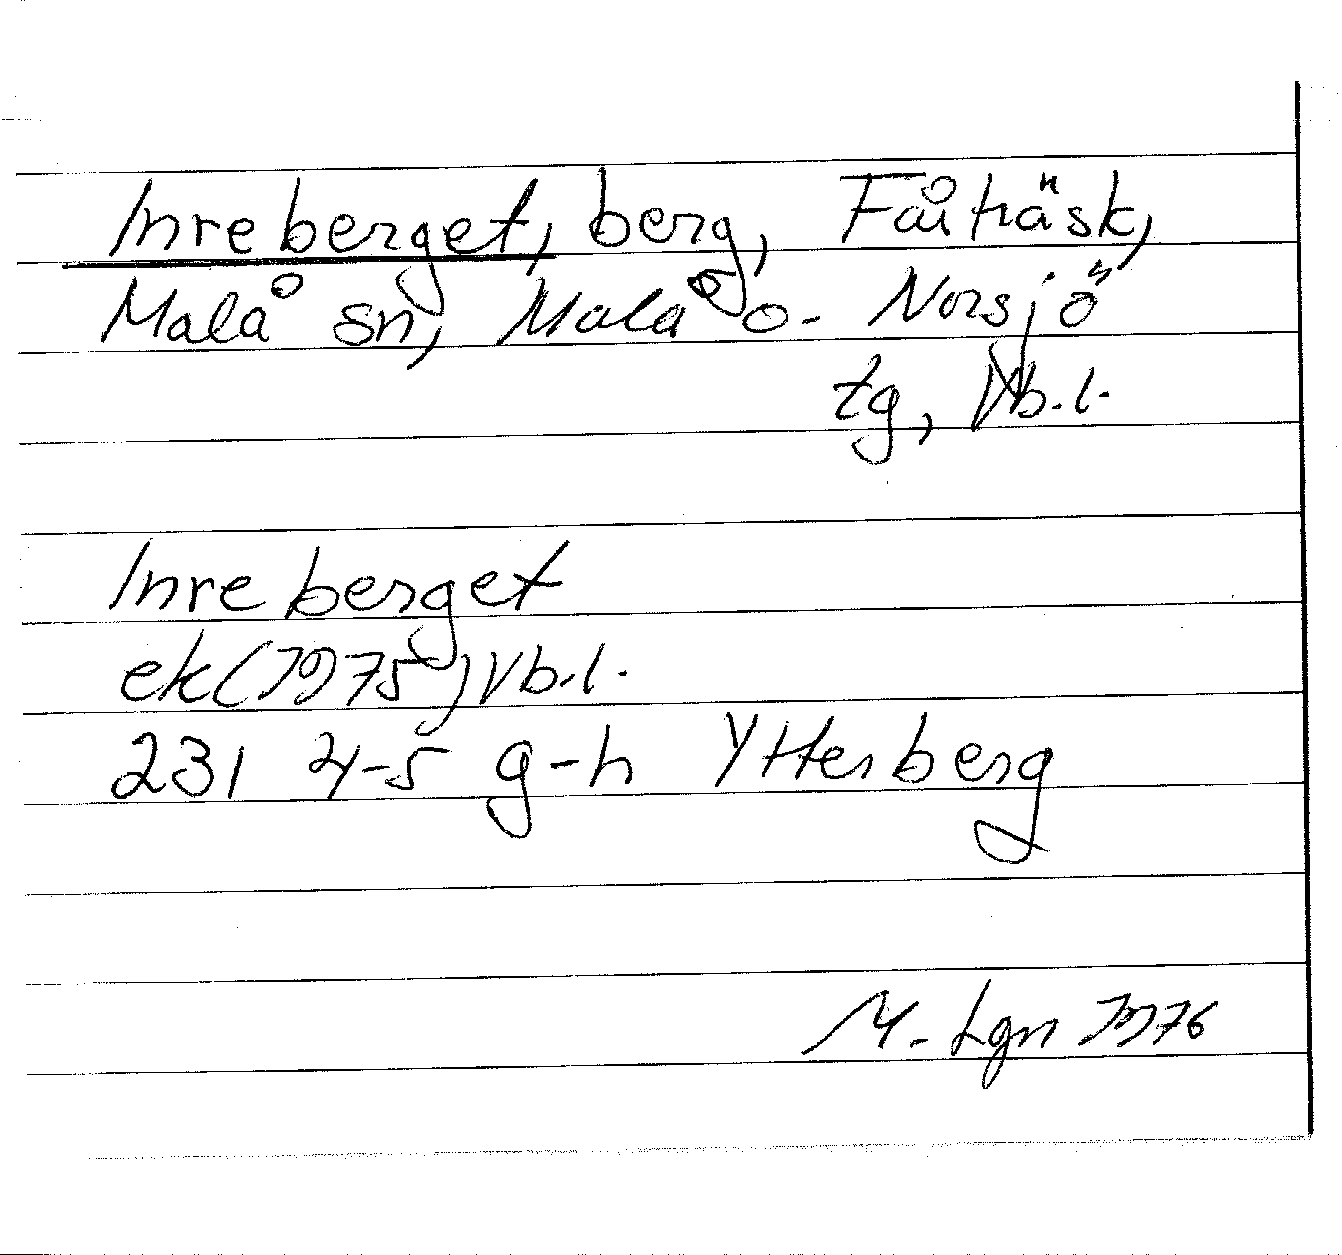 Inreberget, berg, Fåiträsk,
Malå sn, Malå o. Norsjö
tg, Vb.l.
Inreberget
ek(1975)Vb.l.
231 4-5 g-h Ytterberg
M. Lgn 1976